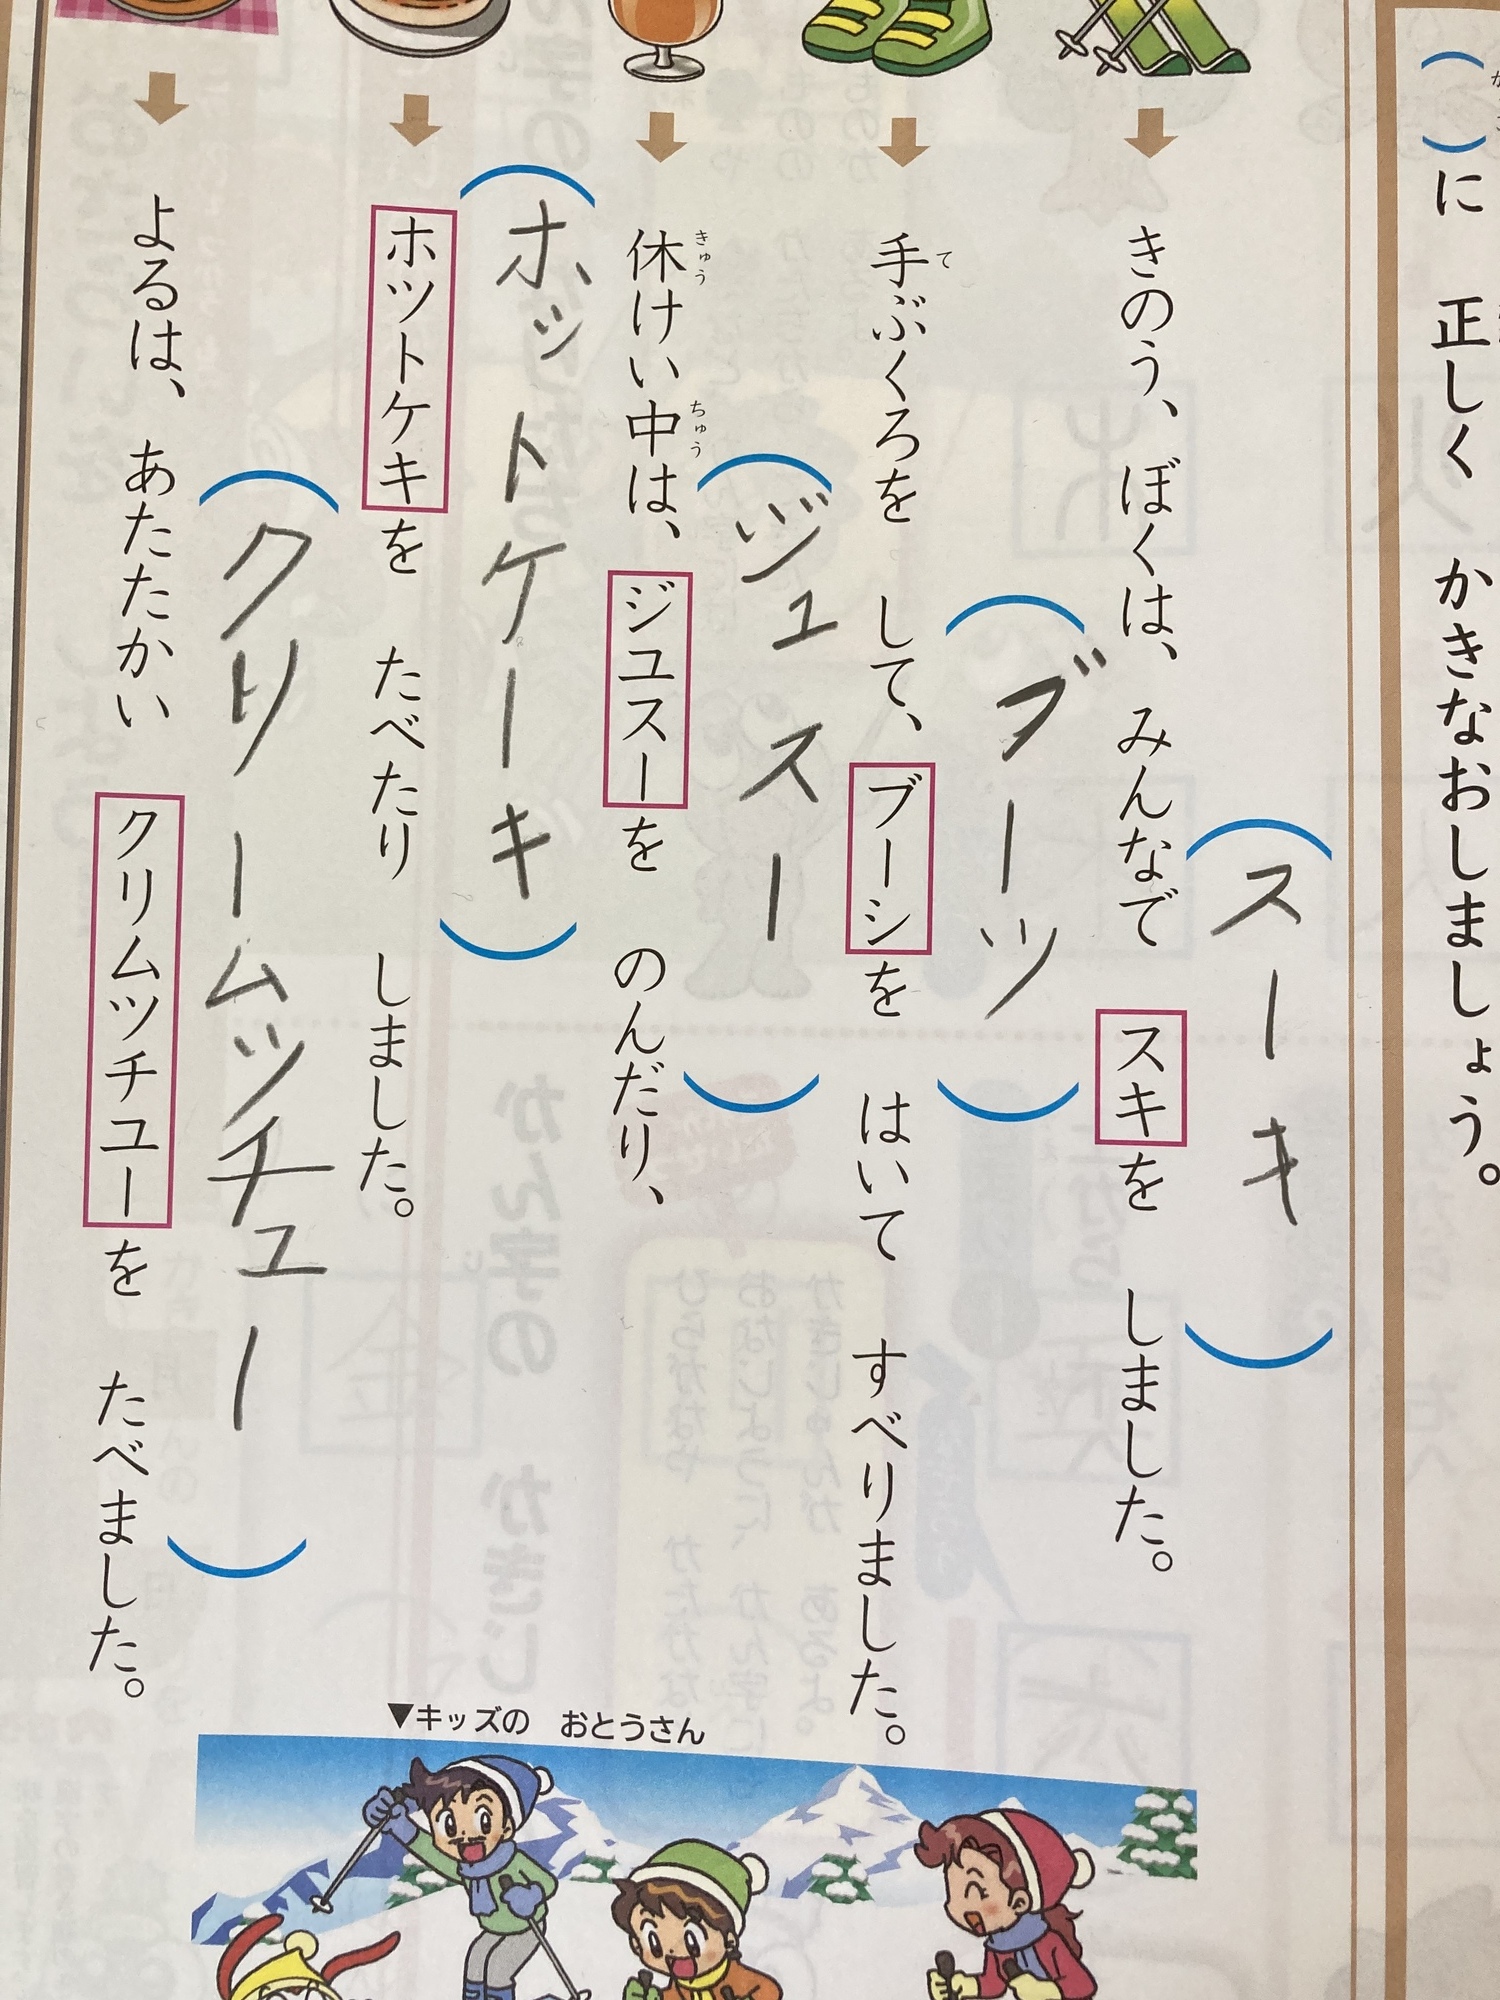 ( )に 正しく かきなおしましょう。
(スーキ)
きのう、ぼくは、みんなで スキを しました。
(ブーツ)
手ぶくろを して、ブーシを はいて すべりました。
て
(ジュスー)
休けい中は、ジユスーを のんだり、
きゅう ちゅう
(ホットケーキ)
ホツトケキを たべたり しました。
(クリームッチュー)
よるは、あたたかい クリムツチユーを たべました。
▼キッズの おとうさん